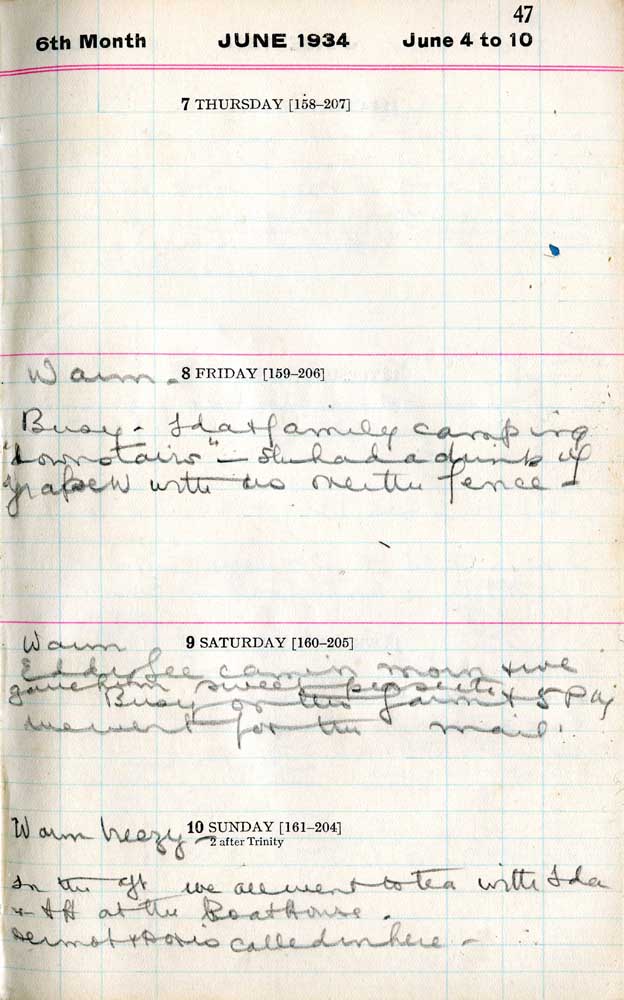 47
6th Month JUNE 1934 June 4 to 10
7 THURSDAY [158–207]
Warm - 8 FRIDAY [159–206]
Busy - Ida & family camping
"downstairs" - She had a drink of
with us over the fence -
Warm 9 SATURDAY [160–205]
Eddie Lee came in morn & we
gave him sweet
Busy on the farm &
went for the mail.
Warm breezy - 10 SUNDAY [161–204]
2 after Trinity
In the aft we all went to tea with Ida
& at the Boathouse.
Dermot & Doris called in here -